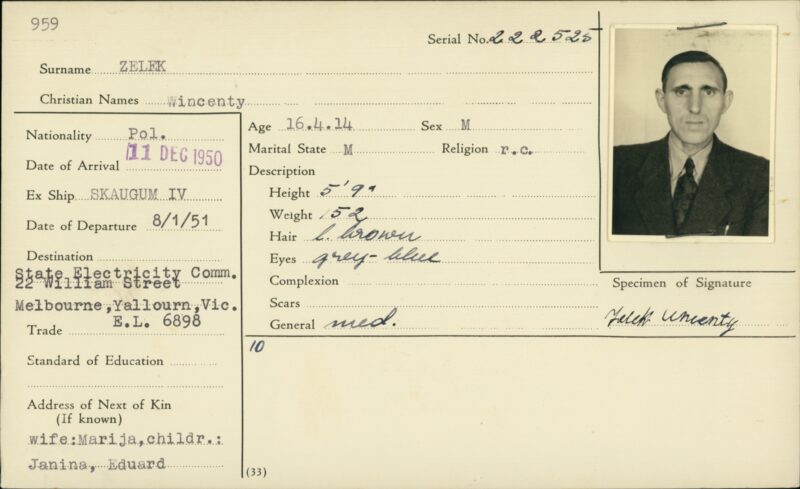 959
Serial No. 222525
Surname ZELEK
Christian Names Wincenty
Nationality Pol.
Date of Arrival 11 DEC 1950
Ex Ship SKAUGUM IV
Date of Departure 8/1/51
Destination
State Electricity Comm.
22 William Street
Melbourne, Yallourn, Vic.
E.L. 6898
Trade
Standard of Education
Address of Next of Kin
(If known)
wife:Marija,childr.:
Janina, Eduard
Age 16.4.14 Sex M
Marital State M Religion r.c.
Description
Height 5'9"
Weight 152
Hair l. brown
Eyes grey-blue
Complexion
Scars
General med.
Specimen of Signature
Zelek Wincenty
10
(33)